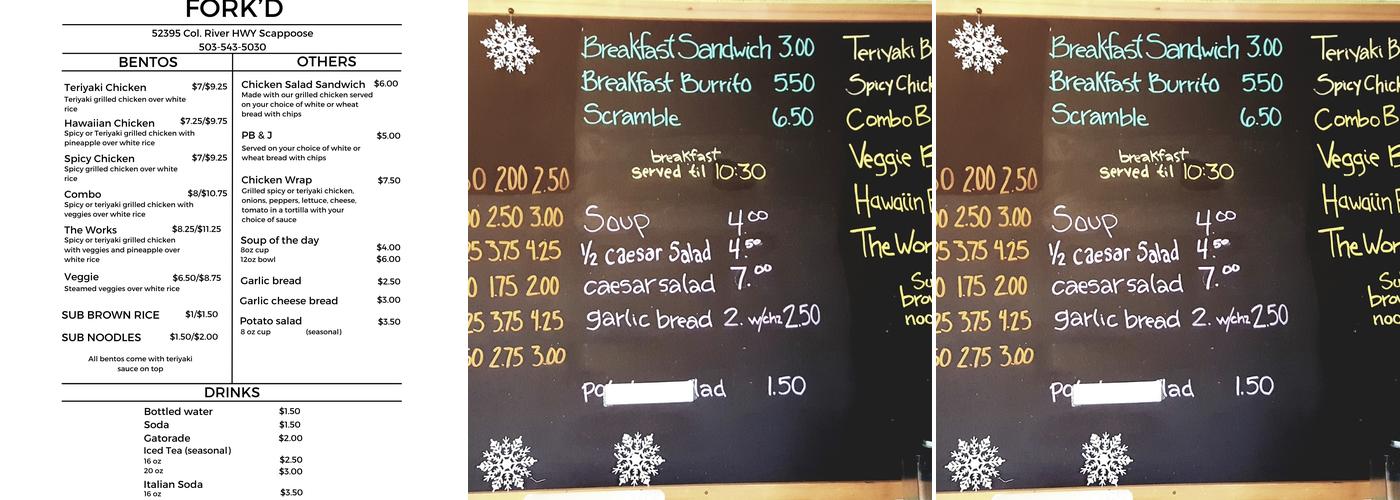 FORK'D
52395 Col. River HWY Scappoose
503-543-5030
BENTOS
Teriyaki Chicken $7/$9.25
Teriyaki grilled chicken over white
rice
Hawaiian Chicken $7.25/$9.75
Spicy or Teriyaki grilled chicken with
pineapple over white rice
Spicy Chicken $7/$9.25
Spicy grilled chicken over white
rice
Combo $8/$10.75
Spicy or teriyaki grilled chicken with
veggies over white rice
The Works $8.25/$11.25
Spicy or teriyaki grilled chicken
with veggies and pineapple over
white rice
Veggie $6.50/$8.75
Steamed veggies over white rice
SUB BROWN RICE $1/$1.50
SUB NOODLES $1.50/$2.00
All bentos come with teriyaki
sauce on top
OTHERS
Chicken Salad Sandwich $6.00
Made with our grilled chicken served
on your choice of white or wheat
bread with chips
PB & J $5.00
Served on your choice of white or
wheat bread with chips
Chicken Wrap $7.50
Grilled spicy or teriyaki chicken,
onions, peppers, lettuce, cheese,
tomato in a tortilla with your
choice of sauce
Soup of the day
8oz cup $4.00
12oz bowl $6.00
Garlic bread $2.50
Garlic cheese bread $3.00
Potato salad $3.50
8 oz cup (seasonal)
DRINKS
Bottled water $1.50
Soda $1.50
Gatorade $2.00
Iced Tea (seasonal)
16 oz $2.50
20 oz $3.00
Italian Soda
16 oz $3.50
0 2.00 2.50
0 2.50 3.00
25 3.75 4.25
0 1.75 2.00
25 3.75 4.25
0 2.75 3.00
Breakfast Sandwich 3.00
Breakfast Burrito 5.50
Scramble 6.50
breakfast
served til 10:30
Soup 4.00
1/2 caesar Salad 4.50
caesar salad 7.00
garlic bread 2. w/chz 2.50
lad 1.50
Teriyaki B
Spicy Chick
Combo B
Veggie B
Hawaiin
The Wor
Su
brow
noo
0 2.00 2.50
0 2.50 3.00
25 3.75 4.25
0 1.75 2.00
25 3.75 4.25
0 2.75 3.00
Breakfast Sandwich 3.00
Breakfast Burrito 5.50
Scramble 6.50
breakfast
served til 10:30
Soup 4.00
1/2 caesar Salad 4.50
caesar salad 7.00
garlic bread 2. w/chz 2.50
lad 1.50
Teriyaki B
Spicy Chick
Combo B
Veggie B
Hawaiin
The Wor
Su
brow
noo